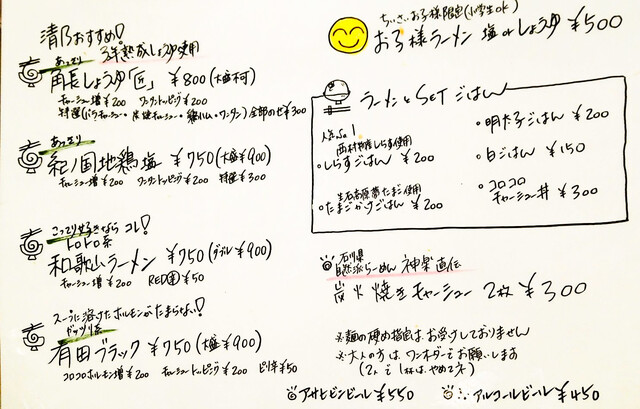 清乃おすすめ!
あっさり 3年熟成しょうゆ使用
角長しょうゆ「匠」 ¥800(大盛不可)
チャーシュー増¥200 ワンタントッピング¥200
特選(バラチャーシュー・炭焼チャーシュー・ワンタン)全部のせ¥300
あっさり
紀ノ国地鶏塩 ¥750(大盛¥900)
チャーシュー増¥200 ワンタントッピング¥200 特選¥300
こってり好きならコレ!
トロトロ系
和歌山ラーメン ¥750(ダブル¥900)
チャーシュー増¥200 RED¥50
スープに溶けたホルモンがたまらない!
ガッツリ系
有田ブラック ¥750(大盛¥900)
コロコロホルモン増¥200 チャーシュートッピング¥200 ピリ辛¥50
ちいさいお子様限定(小学生ok)
お子様ラーメン 塩orしょうゆ ¥500
ラーメンとSETごはん
人気No1
西村物産しらす使用
・しらすごはん ¥200
生石高原の葉たまご使用
・たまごかけごはん ¥200
・明太子ごはん ¥200
・白ごはん ¥150
・コロコロ
チャーシュー丼 ¥300
石川県
自然派らーめん 神楽直伝
炭火焼きチャーシュー 2枚 ¥300
※麺の硬め指定はお受けしておりません
※大人の方は、ワンオーダーでお願いします
(2人で1杯は、やめてネ)
アサヒビンビール¥550
アルコールビール¥450